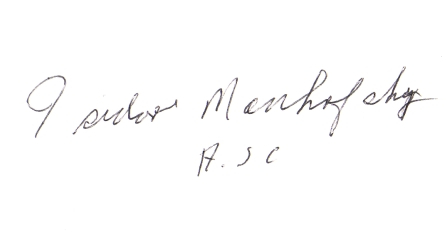 Isidor Mankofsky
A.S.C